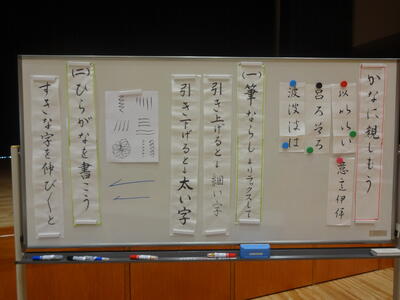 かなに親しもう
以 い
呂 ろ
波 波 は は
意 立 伊 保
(一) 筆ならし→リラックスして
引き上げると→細い字
引き下げると→太い字
(二) ひらがなを書こう
すきな字を伸びくと